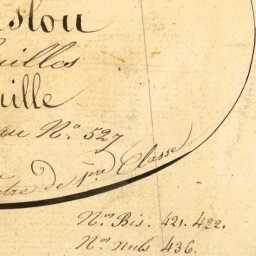 slou
uilles
uille
au N.º 527
tre de 1.re Classe
N.os Bis. 421. 422.
N.os nuls 436.